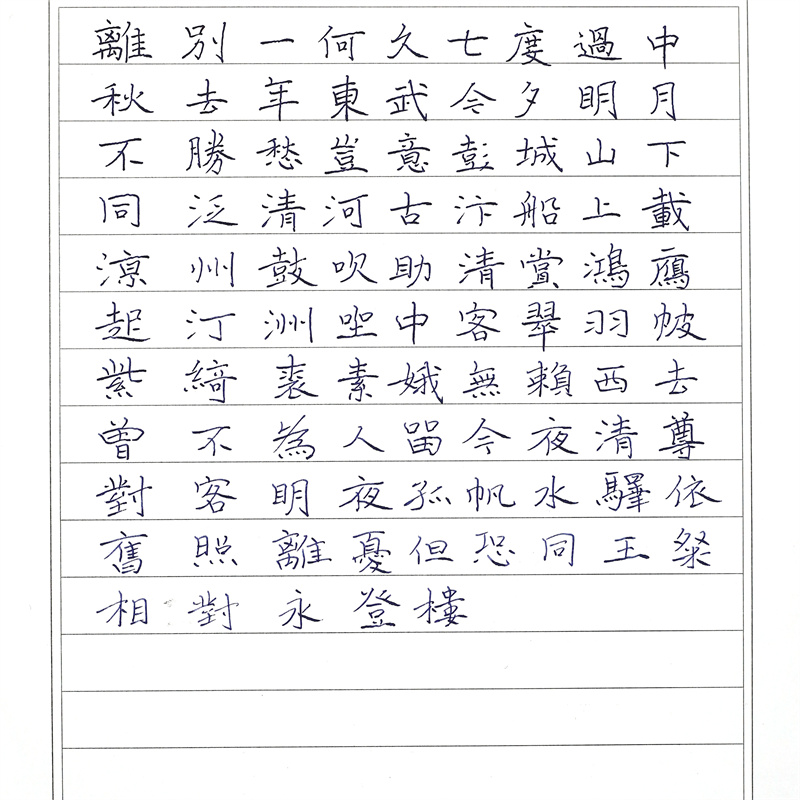 離別一何久七度過中
秋去年東武今夕明月
不勝愁豈意彭城山下
同泛清河古汴船上載
涼州鼓吹助清賞鴻鴈
起汀洲坐中客翠羽帔
紫綺裘素娥無賴西去
曾不為人留今夜清尊
對客明夜孤帆水驛依
舊照離憂但恐同王粲
相對永登樓